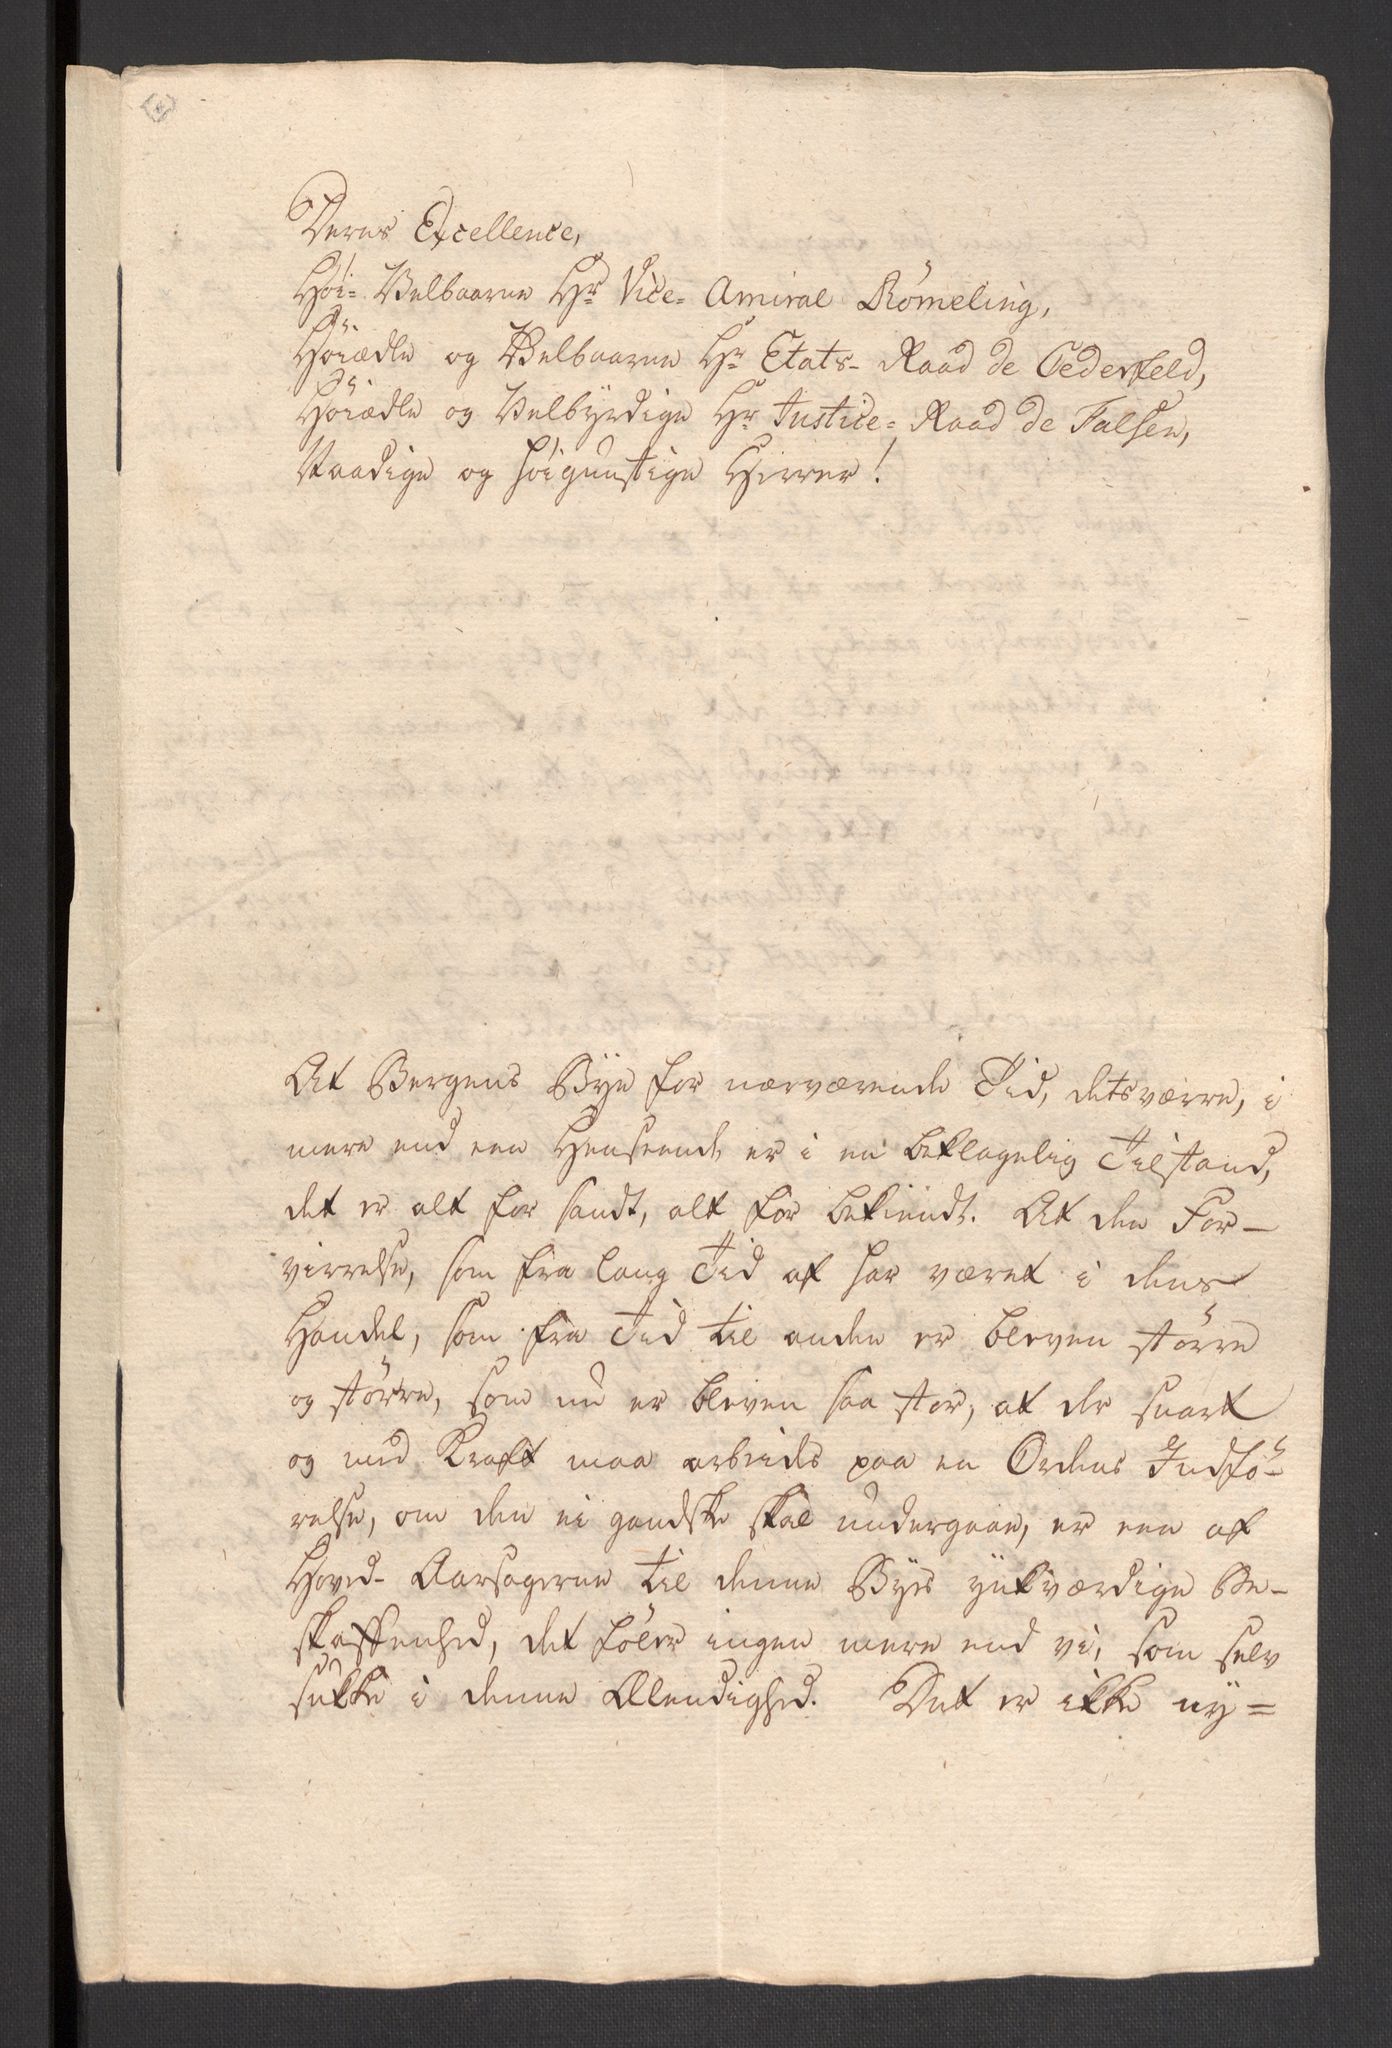 Deres Excellence,
Höi- Velbaarne Hr Vice- Amiral Römeling,
Höiædle og Velbaarne Hr Etats- Raad de Cederfeld,
Höiædle og Velbyrdige Hr Justice- Raad de Falsen,
Naadige og höigunstige Herrer!
At Bergens Bye for nærværende Tid, detsværre, i
mere end een Henseende er i en beklagelig Tilstand,
det er alt for sandt, alt for bekiendt. At den For-
virrelse, som fra lang Tid af har været i dens
Handel, som fra Tid til anden er bleven större
og större, som nu er bleven saa stor, at der snart
og med Kraft maa arbeides paa en Ordens Indfö-
relse, om den ei gandske skal undergaae, er een af
Hoved- Aarsagerne til denne Byes ynkværdige Be-
skaffenhed, det föler ingen mere end vi, som selv
sukke i denne Elendighed. Det er ikke ny-